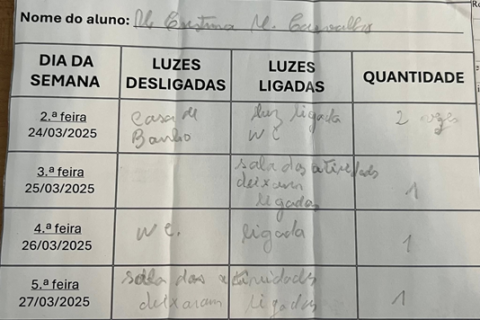 Nome do aluno: Mª Cristina M. Carvalho
DIA DA SEMANA
LUZES DESLIGADAS
LUZES LIGADAS
QUANTIDADE
2.ª feira
24/03/2025
casa de
Banho
luz ligada
WC
2
3.ª feira
25/03/2025
sala das atividades
deixaram
ligadas
1
4.ª feira
26/03/2025
WC.
ligada
1
5.ª feira
27/03/2025
sala das atividades
deixaram ligadas
1